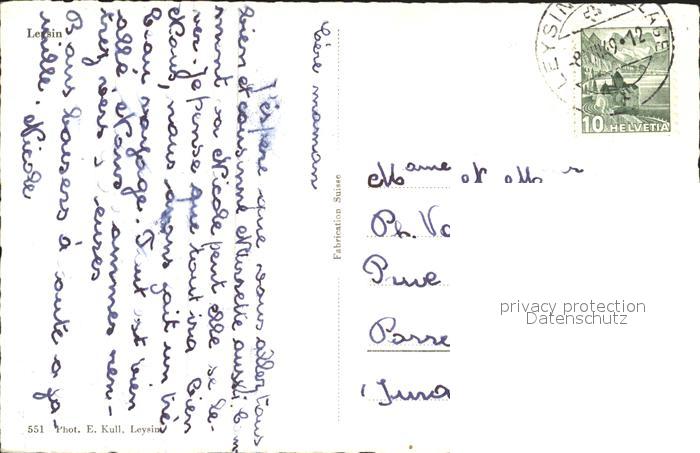 Leysin
Chère maman
J'espère que vous allez tous
bien et
comment va Nicole peut elle se le-
ver. Je pense que tout ira bien
Nous, nous avons fait un très
beau voyage. Tout est bien
allé. Nous sommes ren-
trés vers 5 heures
Bons baisers à toute la fa-
mille. Nicole
551 Phot. E. Kull, Leysin
Fabrication Suisse
LEYSIN VILLAGE
10 HELVETIA
Mame et Mr
Ph.
Porre
(Jura
privacy protection
Datenschutz